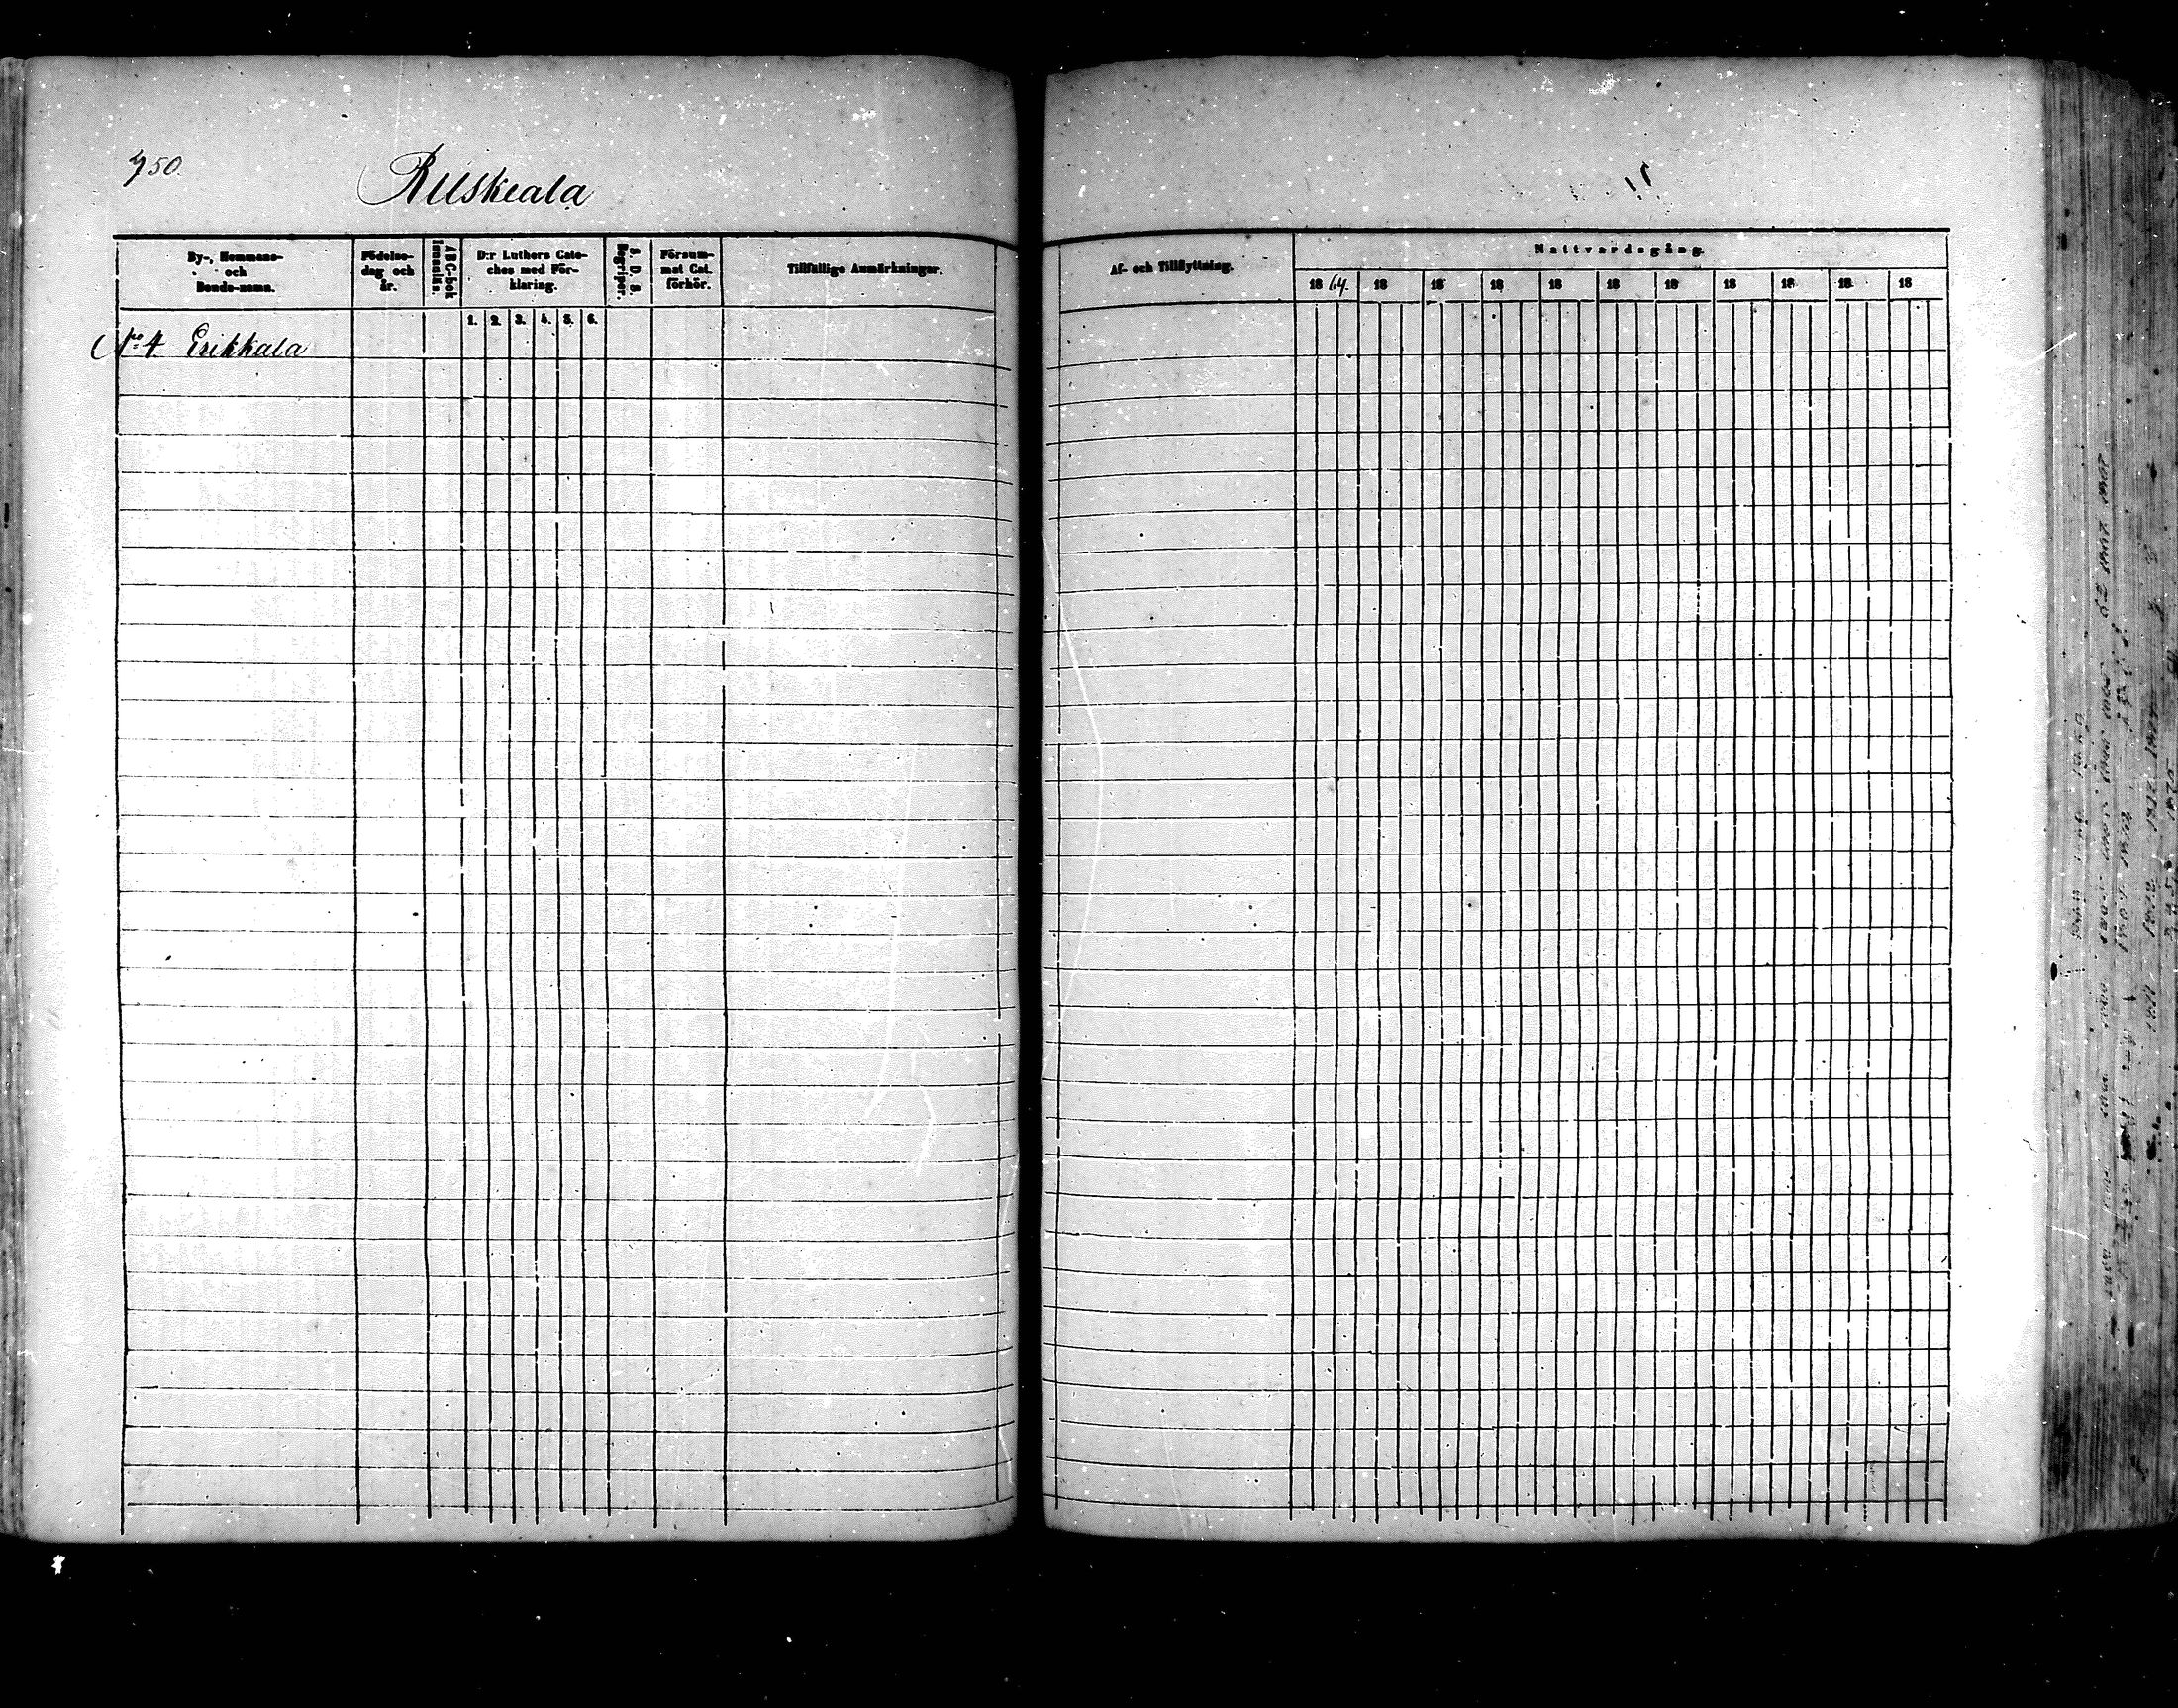 750.
Ruskeala
By-, Hemmans- och Bonde-namn.
Födelse-dag och år.
ABC-bok Innanläs.
D:r Luthers Cate-ches med För-klaring.
1. 2. 3. 4. 5. 6.
S. D. S. Begriper.
Försum-mat Cat. förhör.
Tillfällige Anmärkningar.
Af- och Tillflyttning.
Nattvardsgång.
1864. 18 18 18 18 18 18 18 18 18 18
No 4 Erikkala